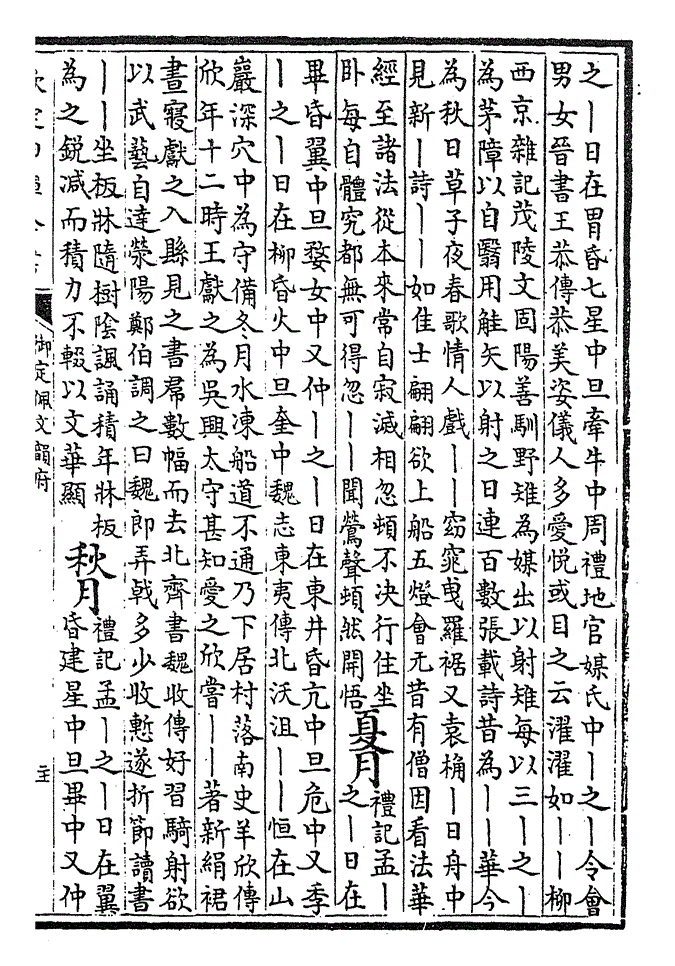 之丨日在胃昏七星中旦牽牛中周禮地官媒氏中丨之丨令會
男女晉書王恭傳恭美姿儀人多愛悅或目之云濯濯如丨丨柳
西京雜記茂陵文固陽善馴野雉為媒出以射雉每以三丨之丨
為茅障以自翳用觟矢以射之日連百數張載詩昔為丨丨華今
為秋日草子夜春歌情人戲丨丨窈窕曵羅裾又袁桷丨日舟中
見新丨詩丨丨如佳士翩翩欲上船五燈會元昔有僧因看法華
經至諸法從本來常自寂滅相忽頓不决行住坐
卧每自體究都無可得忽丨丨聞鶯聲頓然開悟
夏月
禮記孟丨
之丨日在
畢昏翼中旦婺女中又仲丨之丨日在東井昏亢中旦危中又季
丨之丨日在柳昏火中旦奎中魏志東夷傳北沃沮丨丨恒在山
巖深穴中為守備冬月水凍船道不通乃下居村落南史羊欣傳
欣年十二時王獻之為吳興太守甚知愛之欣嘗丨丨著新絹裙
晝寢獻之入縣見之書帬數幅而去北齊書魏收傳好習騎射欲
以武藝自達滎陽鄭伯調之曰魏郎弄戟多少收慙遂折節讀書
丨丨坐板牀隨樹陰諷誦積年牀板
為之銳减而積力不輟以文華顯
秋月
禮記孟丨之丨日在翼
昏建星中旦畢中又仲
御定佩文韻府